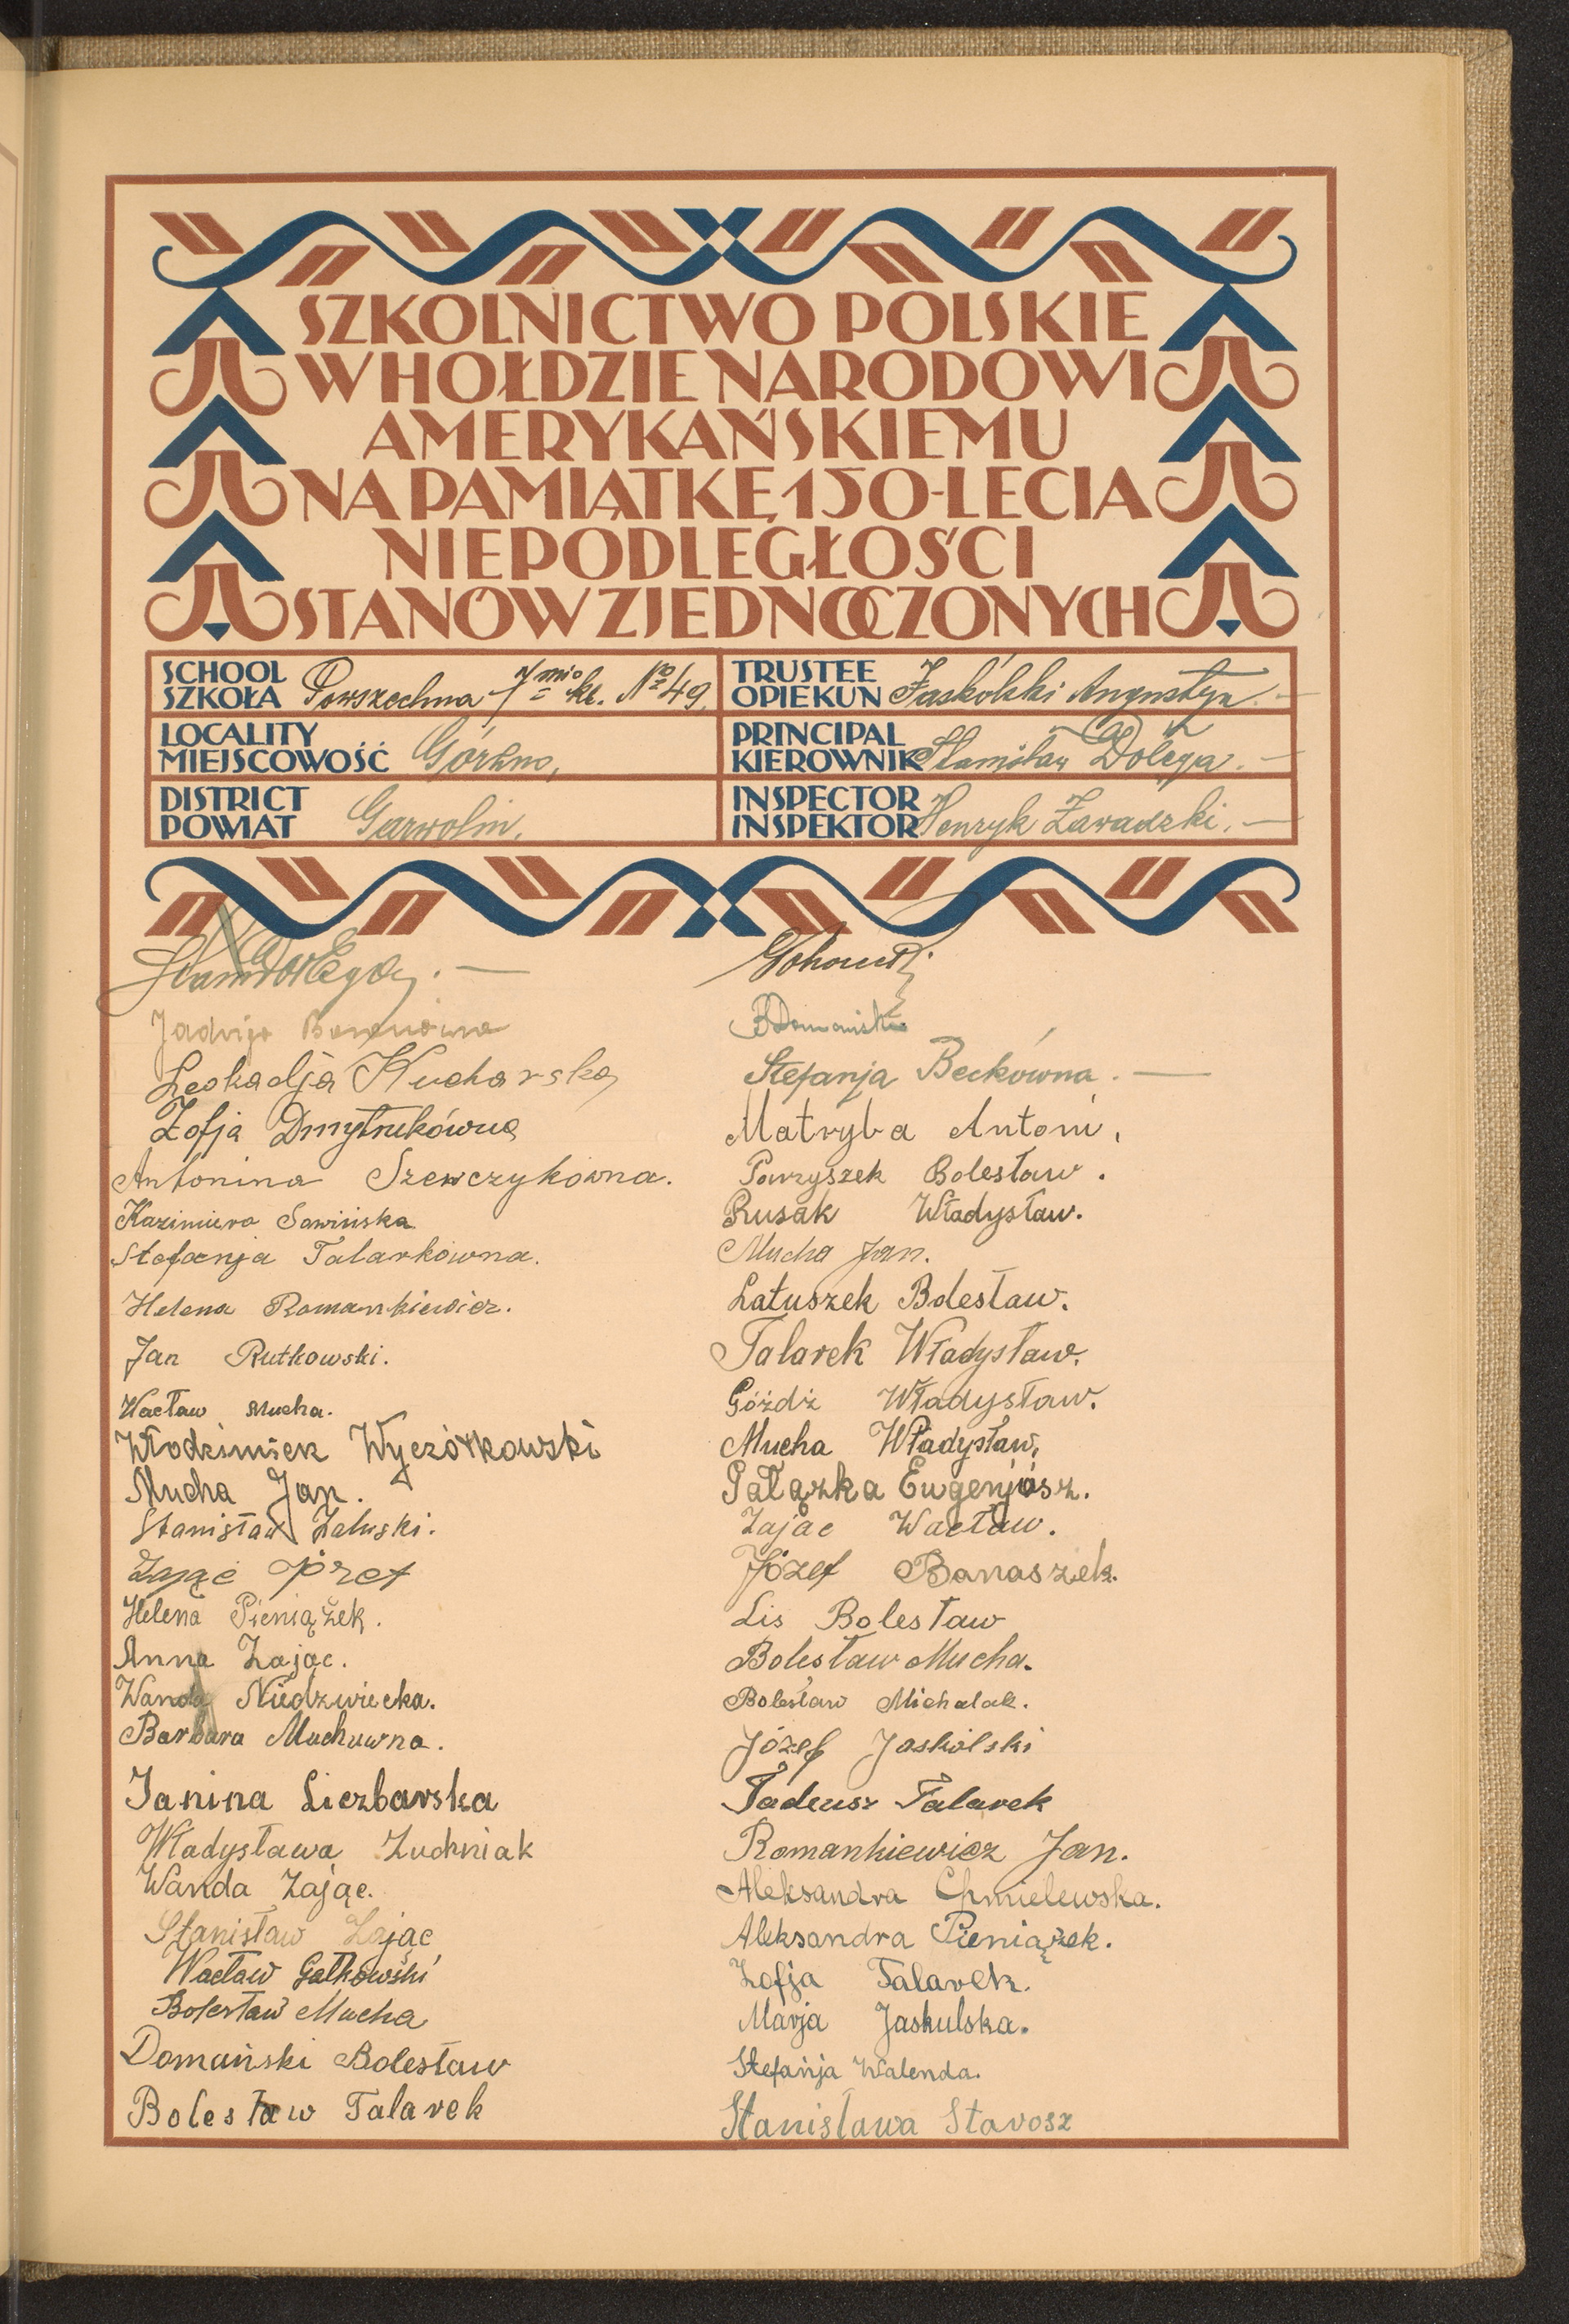 SZKOLNICTWO POLSKIE
W HOŁDZIE NARODOWI
AMERYKAŃSKIEMU
NA PAMIĄTKĘ 150-LECIA
NIEPODLEGŁOŚCI
STANÓW ZJEDNOCZONYCH
SCHOOL
SZKOŁA Powszechna 7mio kl. № 49.
TRUSTEE
OPIEKUN Jaskólski Augustyn
LOCALITY
MIEJSCOWOŚĆ Górzno,
PRINCIPAL
KIEROWNIK Stanisław Dołęga. —
DISTRICT
POWIAT Garwolin.
INSPECTOR
INSPEKTOR Henryk Zawadzki. —
Jadwiga
Leokadja Kucharska
Zofja Dmytrukówna
Antonina Szewczykówna.
Kazimiera Sawińska
Stefanja Talarkówna.
Helena Romankiewicz.
Jan Rutkowski.
Wacław Mucha.
Włodzimierz Wyczółkowski
Mucha Jan.
Stanisław Załuski.
Zając Józef
Helena Pieniążek.
Anna Zając.
Wanda Niedzwiecka.
Barbara Muchuwna.
Janina Liczbarska
Władysława Zuchniak
Wanda Zając.
Stanisław Zając
Wacław Gałkowski
Bolesław Mucha
Domański Bolesław
Bolesław Talarek
B Domański
Stefanja Beckówna. —
Matryba Antoni,
Parzyszek Bolesław.
Rusak Władysław.
Mucha Jan.
Łatuszek Bolesław.
Talarek Władysław.
Góźdź Władysław.
Mucha Władysław,
Gałązka Eugenjusz.
Zając Wacław.
Józef Banaszek.
Lis Bolesław
Bolesław Mucha.
Bolesław Michalak.
Józef Jaskólski
Tadeusz Talarek
Romankiewicz Jan.
Aleksandra Chmielewska.
Aleksandra Pieniążek.
Zofja Talarek.
Marja Jaskulska.
Stefanja Walenda.
Stanisława Starosz